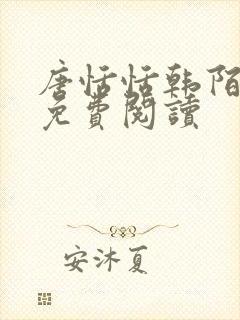 唐恬恬韩陌
免費閱讀
安沐夏